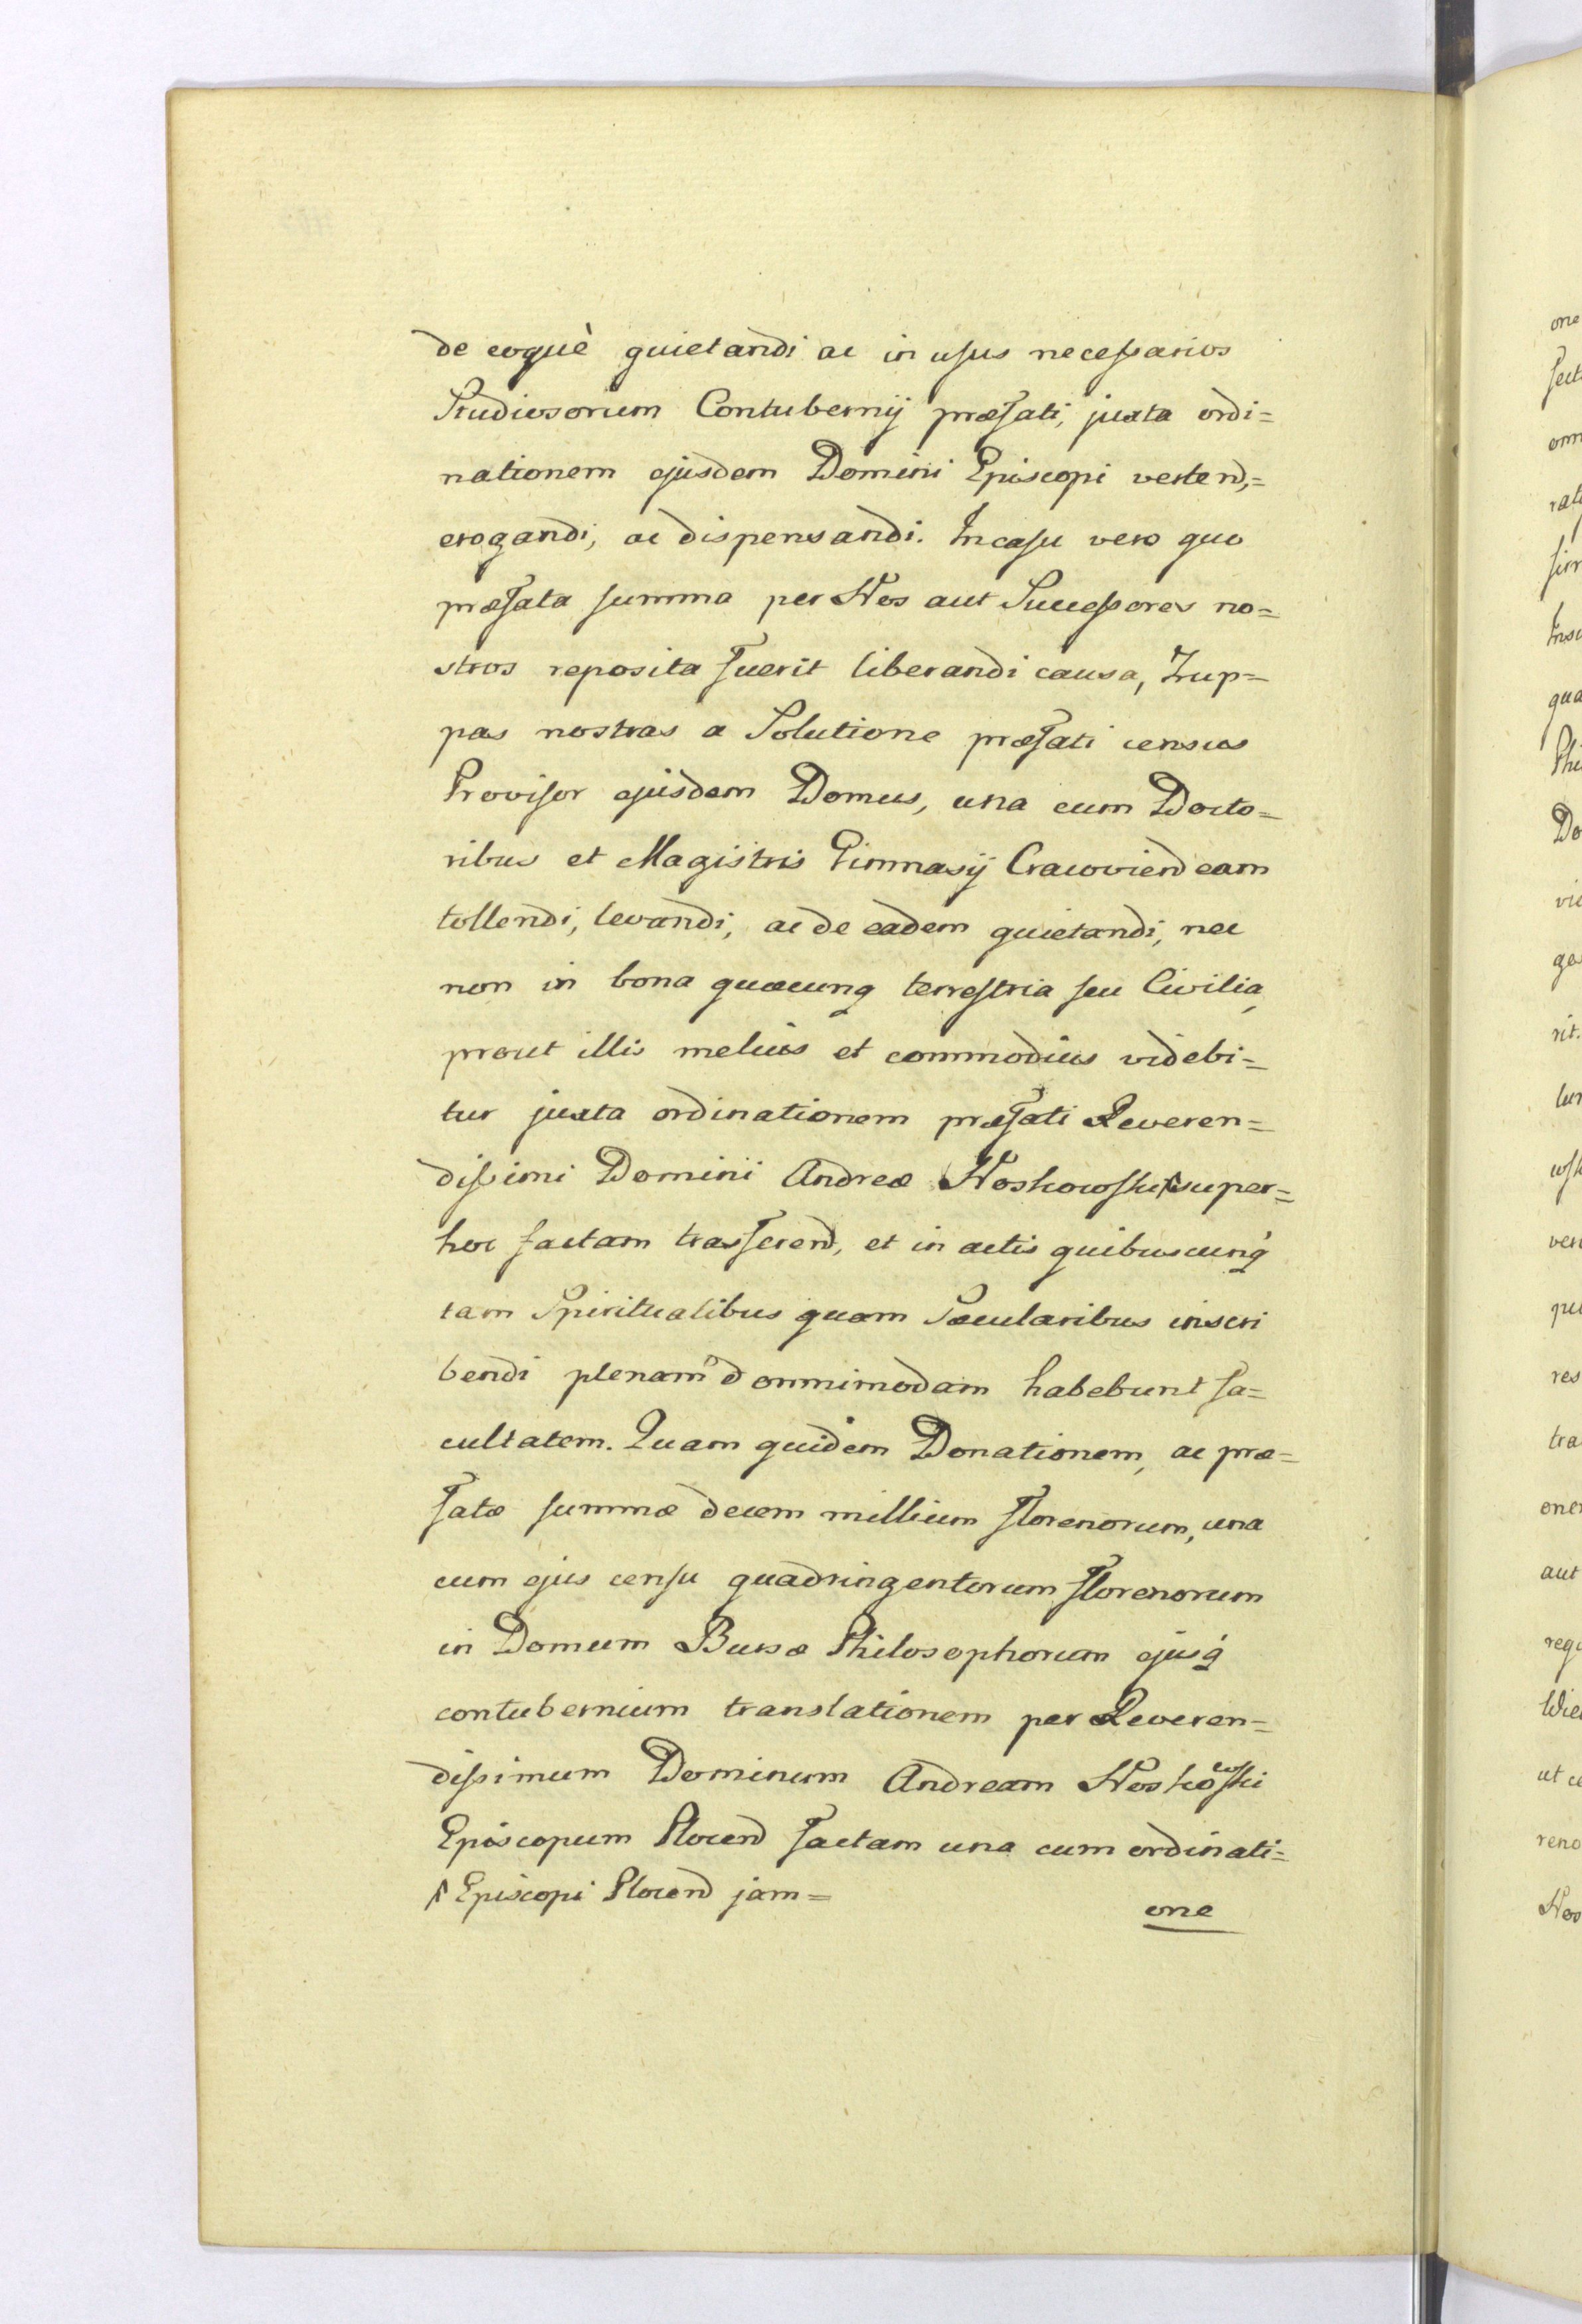 de eoquè quietandi ac in usus necessarios
Studiosorum Contubernij præfati, juxta ordi=
nationem ejusdem Domini Episcopi vertend,=
erogandi, ac dispensandi. In casu vero quo
præfata summa per Nos aut Successores no=
stros reposita fuerit liberandi causa, Zup=
pas nostras a Solutione præfati census
Provisor ejusdem Domus, una cum Docto=
ribus et Magistris Gimnasij Cracoviend eam
tollendi, levandi, ac de eadem quietandi, nec
non in bona quæcunq terrestria seu Civilia,
prout illis melius et commodius videbi=
tur juxta ordinationem præfati Reveren=
dissimi Domini Andreæ Noskowski super=
hoc factam trasferend, et in actis quibuscunq
tam Spiritualibus quam Sæcularibus inscri
bendi plenam d omnimodam habebunt fa=
cultatem. Quam quidem Donationem, ac præ=
fatæ summæ decem millium florenorum, una
cum ejus censu quadringentorum florenorum
in Domum Bursæ Philosophorum ejusq
contubernium translationem per Reveren=
dissimum Dominum Andream Noskowski
Episcopum Plocend factam una cum ordinati=
Episcopi Plocend jam=
one